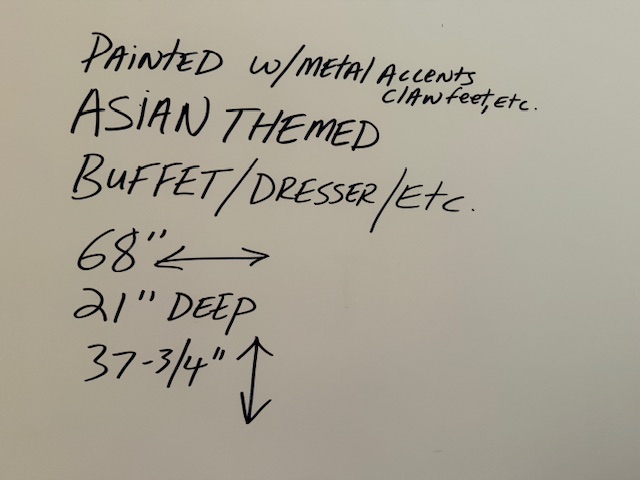 PAINTED W/METAL ACCENTS
CLAW feet, Etc.
ASIAN THEMED
BUFFET/DRESSER/Etc.
68" ↔
21" DEEP
37-3/4" ↕